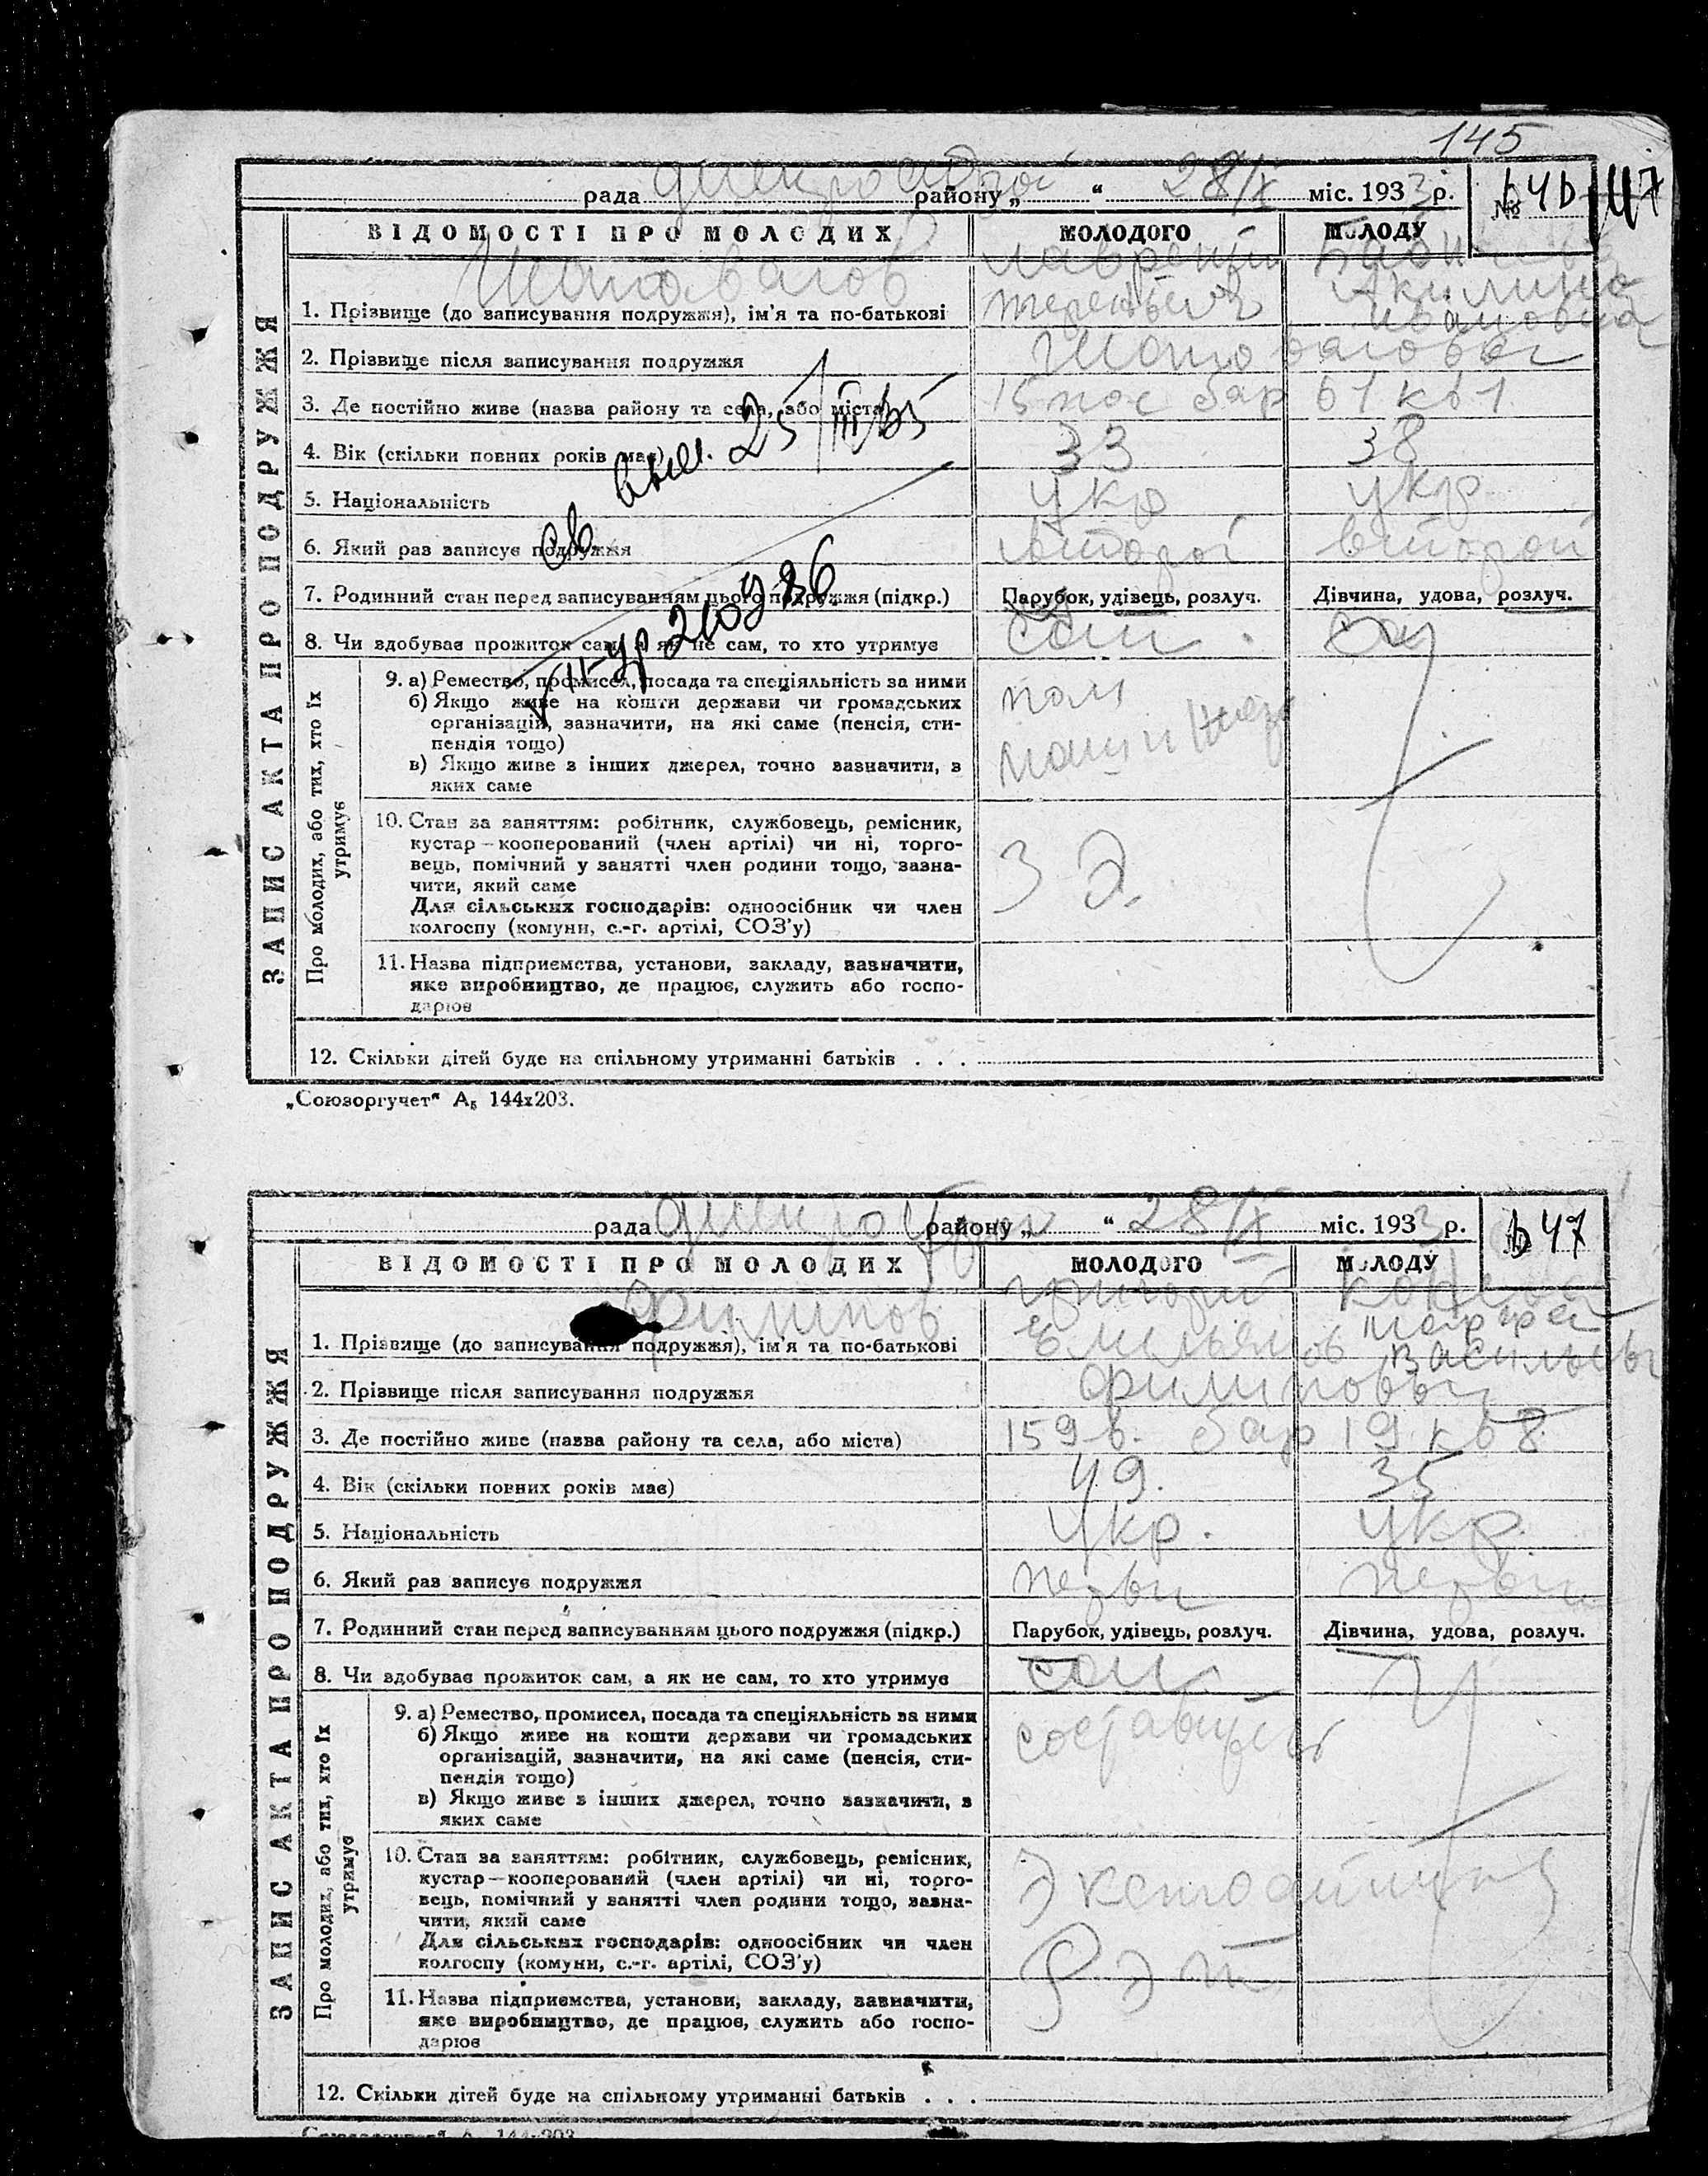 145
рада району „ “ 28/IX міс. 1933 р. №
ВІДОМОСТІ ПРО МОЛОДИХ МОЛОДОГО МОЛОДУ
Шаповалов Лаврентий
1. Прізвище (до записування подружжя), ім’я та по-батькові Терентьевич Акилина Ивановна
2. Прізвище після записування подружжя Шаповаловы
3. Де постійно живе (назва району та села, або міста) 15 пос бар 61 кв 1
4. Вік (скільки повних років має) 33 38
5. Національність укр укр
6. Який раз записує подружжя второй второй
7. Родинний стан перед записуванням цього подружжя (підкр.) Парубок, удівець, розлуч. Дівчина, удова, розлуч.
8. Чи здобуває прожиток сам, а як не сам, то хто утримує сам
9. а) Ремество, промисел, посада та спеціяльність за ними пом
б) Якщо живе на кошти держави чи громадських
організацій, зазначити, на які саме (пенсія, сти-
пендія тощо)
в) Якщо живе з інших джерел, точно зазначити, з
яких саме
10. Стан за заняттям: робітник, службовець, ремісник,
кустар — кооперований (член артілі) чи ні, торго-
вець, помічний у занятті член родини тощо, зазна-
чити, який саме
Для сільських господарів: одноосібник чи член
колгоспу (комуни, с.-г. артілі, СОЗ’у)
11. Назва підприємства, установи, закладу, зазначити,
яке виробництво, де працює, служить або госпо-
дарює
12. Скільки дітей буде на спільному утриманні батьків . . .
ЗАПИС АКТА ПРО ПОДРУЖЖЯ
Про молодих, або тих, хто їх
утримує
„Союзоргучет“ А₅ 144х203.
рада району „ “ 28/IX міс. 1933 р. 647
ВІДОМОСТІ ПРО МОЛОДИХ МОЛОДОГО МОЛОДУ
Филипов Григорий
1. Прізвище (до записування подружжя), ім’я та по-батькові Емельянов
2. Прізвище після записування подружжя Филиповы
3. Де постійно живе (назва району та села, або міста) 159 в. бар 19 кв 8
4. Вік (скільки повних років має) 49. 35
5. Національність укр. укр.
6. Який раз записує подружжя первы первы
7. Родинний стан перед записуванням цього подружжя (підкр.) Парубок, удівець, розлуч. Дівчина, удова, розлуч.
8. Чи здобуває прожиток сам, а як не сам, то хто утримує сам
9. а) Ремество, промисел, посада та спеціяльність за ними
б) Якщо живе на кошти держави чи громадських
організацій, зазначити, на які саме (пенсія, сти-
пендія тощо)
в) Якщо живе з інших джерел, точно зазначити, з
яких саме
10. Стан за заняттям: робітник, службовець, ремісник,
кустар — кооперований (член артілі) чи ні, торго-
вець, помічний у занятті член родини тощо, зазна-
чити, який саме
Для сільських господарів: одноосібник чи член
колгоспу (комуни, с.-г. артілі, СОЗ’у)
11. Назва підприємства, установи, закладу, зазначити,
яке виробництво, де працює, служить або госпо-
дарює
12. Скільки дітей буде на спільному утриманні батьків . . .
ЗАПИС АКТА ПРО ПОДРУЖЖЯ
Про молодих, або тих, хто їх
утримує